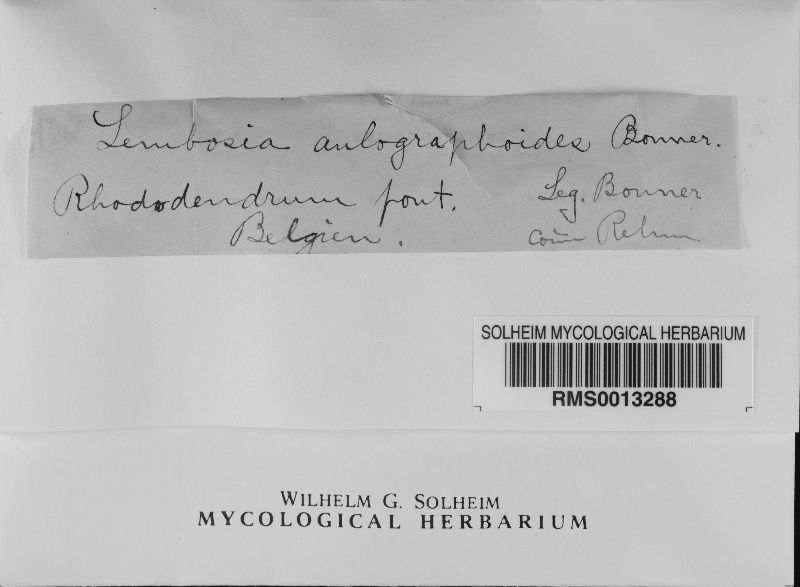 Lembosia aulographoides Bommer.
Rhododendrum pont. Leg. Bommer
Belgien. com Rehm
SOLHEIM MYCOLOGICAL HERBARIUM
RMS0013288
WILHELM G. SOLHEIM
MYCOLOGICAL HERBARIUM